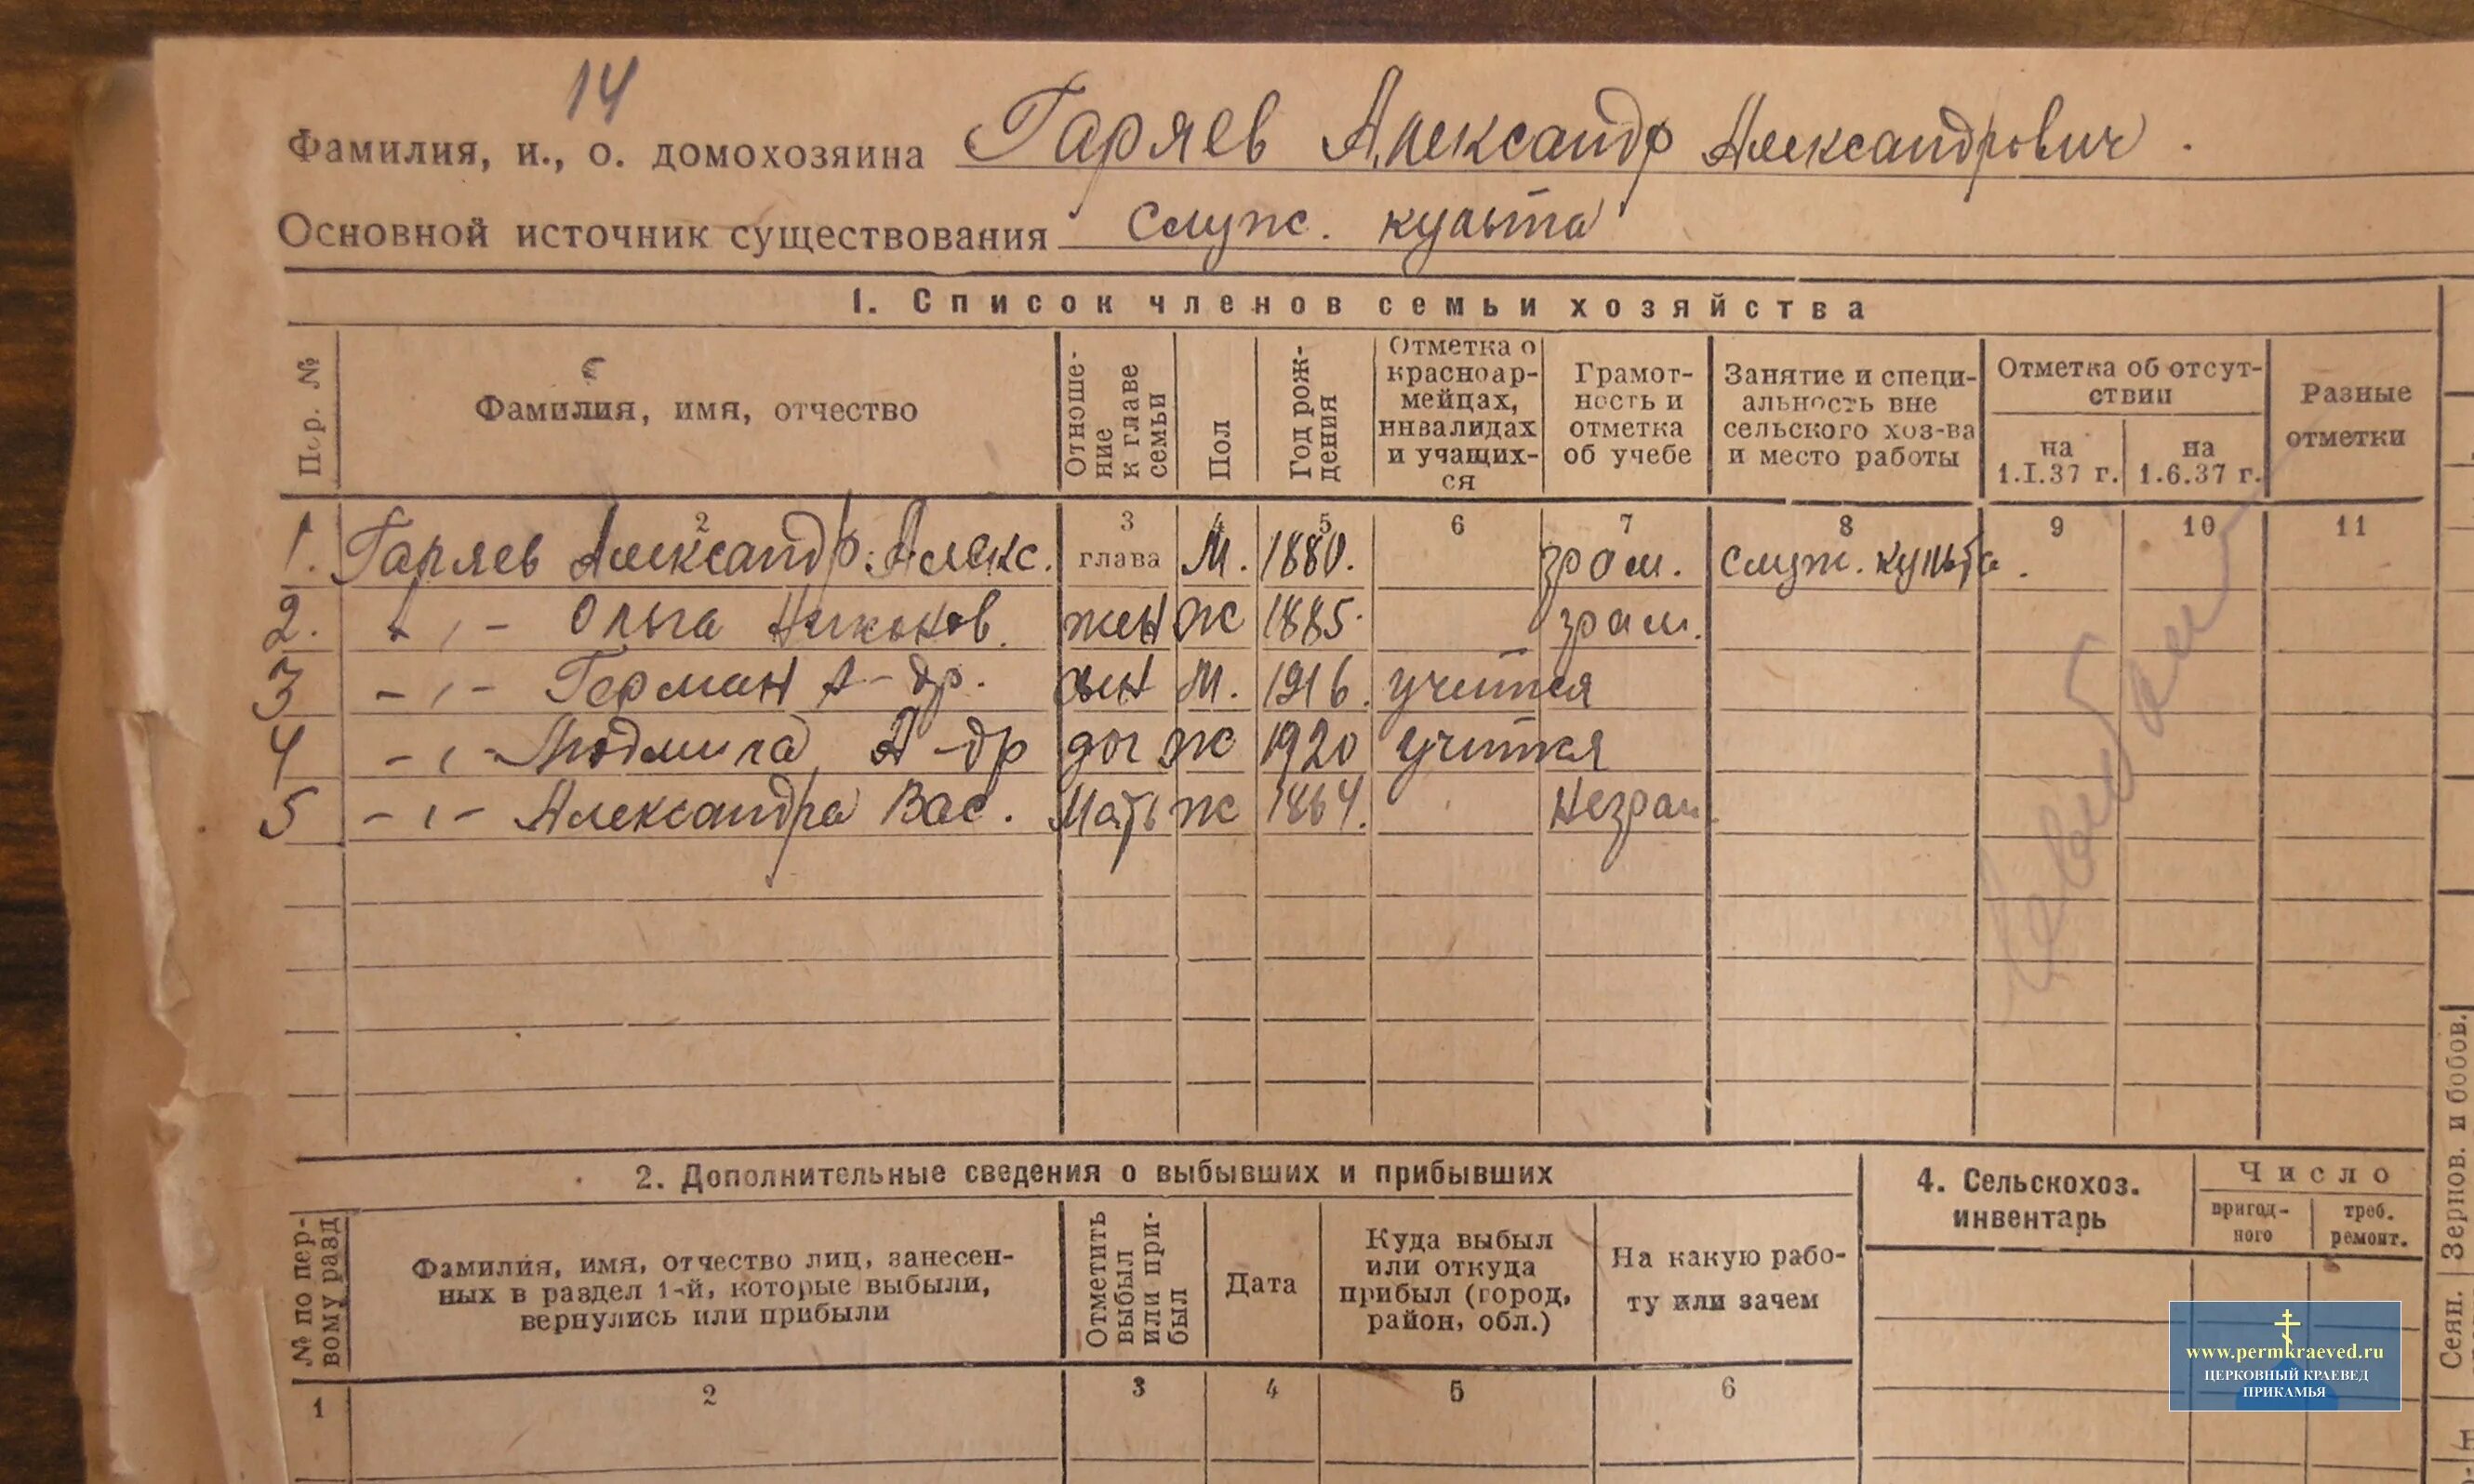 14
Фамилия, и., о. домохозяина Гаряев Александр Александрович.
Основной источник существования служ. культа
1. Список членов семьи хозяйства
Пор. №
Фамилия, имя, отчество
Отноше-
ние
к главе
семьи
Пол
Год рож-
дения
Отметка о
красноар-
мейцах,
инвалидах
и учащих-
ся
Грамот-
ность и
отметка
об учебе
Занятие и специ-
альность вне
сельского хоз-ва
и место работы
Отметка об отсут-
ствии
на
1.I.37 г.
на
1.6.37 г.
Разные
отметки
2 3 4 5 6 7 8 9 10 11
1. Гаряев Александр. Алекс. глава М. 1880. грам. служ. культа.
2. -,- Ольга Никонов. жен ж 1885. грам.
3 -,- Герман А-др. сын М. 1916. учится
4 -,- Людмила А-др доч ж 1920 учится
5 -,- Александра Вас. мать ж 1864. Неграм.
2. Дополнительные сведения о выбывших и прибывших
№ по пер-
вому разд
Фамилия, имя, отчество лиц, занесен-
ных в раздел 1-й, которые выбыли,
вернулись или прибыли
Отметить
выбыл
или при-
был
Дата
Куда выбыл
или откуда
прибыл (город,
район, обл.)
На какую рабо-
ту или зачем
1 2 3 4 5 6
4. Сельскохоз.
инвентарь
Число
пригод-
ного
треб.
ремонт.
Зернов. и бобов.
Сеян.
www.permkraeved.ru
ЦЕРКОВНЫЙ КРАЕВЕД
ПРИКАМЬЯ